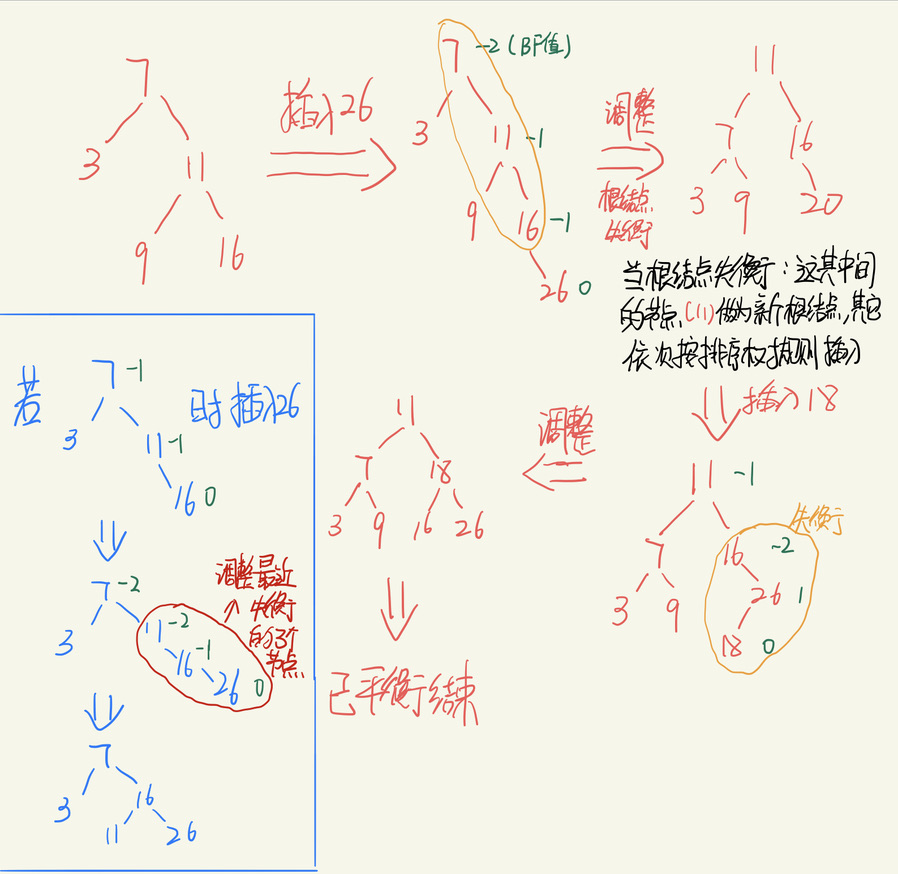 7
3
11
9
16
插入26
7 -2 (BF值)
3
11 -1
9
16 -1
26 0
调整
根结点
失衡
11
7
16
3
9
20
当根结点失衡：这其中间
的节点(11)做为新根结点,其它
依次按排序权规则插入
插入18
11 -1
失衡
7
16 -2
3
9
26 1
18 0
调整
11
7
18
3
9
16
26
已平衡结束
若
7 -1
时插入26
3
11 -1
16 0
7 -2
3
11 -2
16 -1
26 0
调整最近
失衡
的3个
节点
7
3
16
11
26